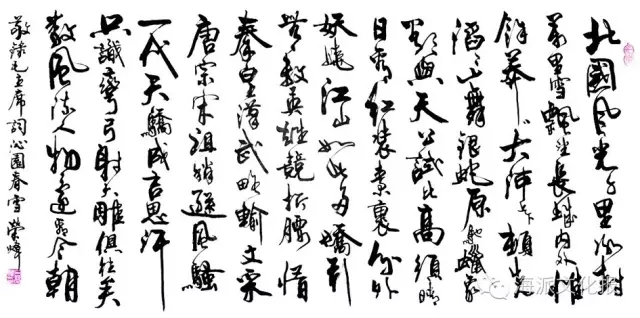 北國風光千里冰封
萬里雪飄望長城内外惟
餘莽莽大河上下頓失
滔滔山舞銀蛇原馳蠟象
欲與天公試比高須晴
日看紅裝素裹分外
妖嬈江山如此多嬌引
無數英雄競折腰惜
秦皇漢武略輸文采
唐宗宋祖稍遜風騷
一代天驕成吉思汗
只識彎弓射大雕俱往矣
數風流人物還看今朝
敬毛主席詞沁園春雪
海派文化报